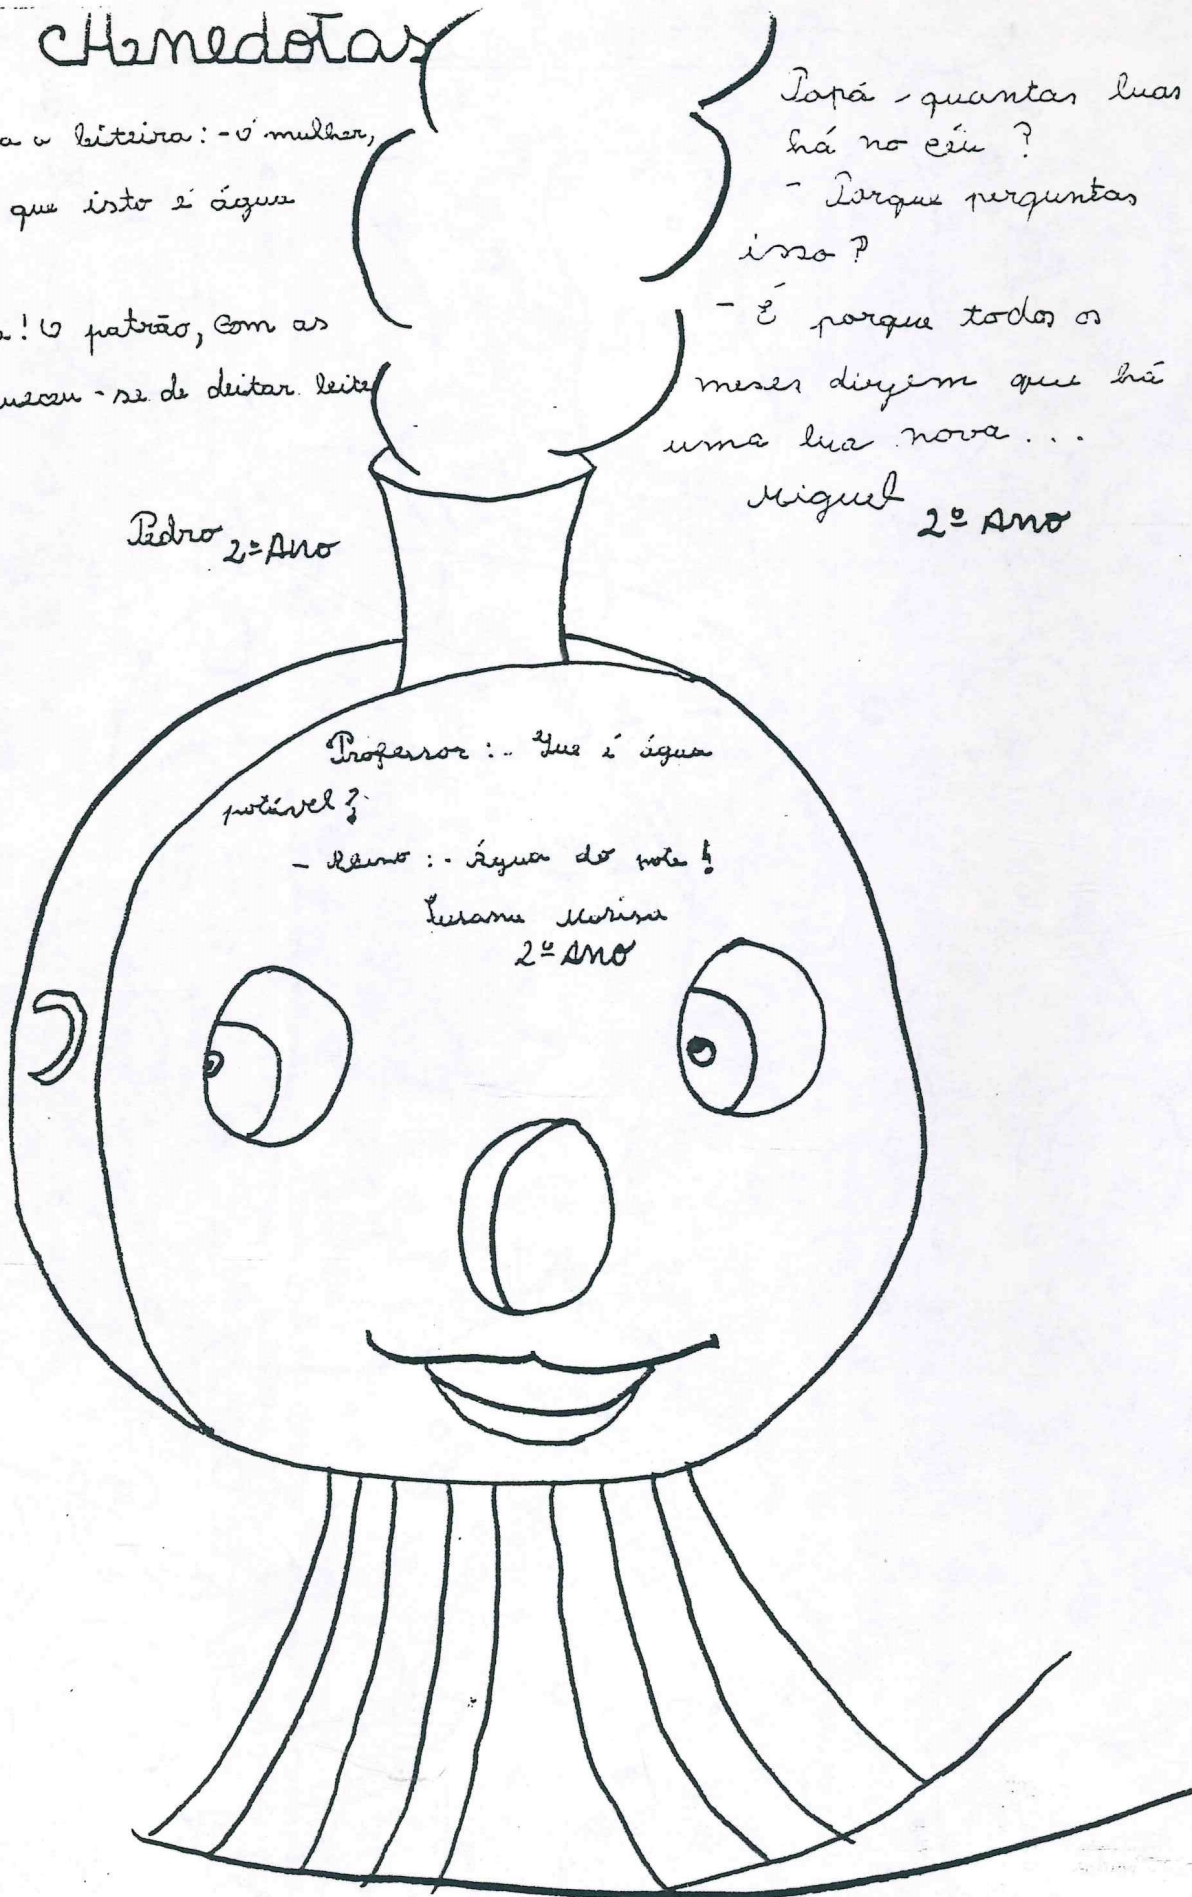 Anedotas
a leiteira: - ó mulher,
que isto é água
! O patrão, com as
-se de deitar leite
Pedro 2º Ano
Papá - quantas luas
há no céu ?
- Porque perguntas
isso ?
- É porque todos os
meses dizem que há
uma lua nova ...
Miguel 2º Ano
Professor : - Que é água
potável ?
- Aluno : - Água do pote !
Susana Marisa
2º Ano